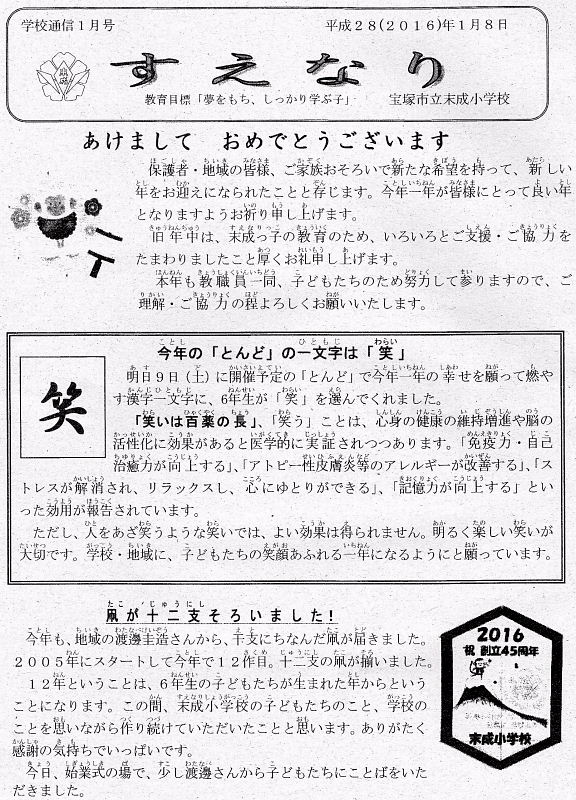 学校通信1月号
平成28(2016)年1月8日
すえなり
教育目標「夢をもち、しっかり学ぶ子」 宝塚市立末成小学校
あけまして おめでとうございます
保護者・地域の皆様、ご家族おそろいで新たな希望を持って、新しい
年をお迎えになられたことと存じます。今年一年が皆様にとって良い年
となりますようお祈り申し上げます。
旧年中は、末成っ子の教育のため、いろいろとご支援・ご協力を
たまわりましたこと厚くお礼申し上げます。
本年も教職員一同、子どもたちのため努力して参りますので、ご
理解・ご協力の程よろしくお願いいたします。
今年の「とんど」の一文字は「笑」
笑
明日9日(土)に開催予定の「とんど」で今年一年の幸せを願って燃や
す漢字一文字に、6年生が「笑」を選んでくれました。
「笑いは百薬の長」、「笑う」ことは、心身の健康の維持増進や脳の
活性化に効果があると医学的に実証されつつあります。「免疫力・自己
治癒力が向上する」、「アトピー性皮膚炎等のアレルギーが改善する」、「ス
トレスが解消され、リラックスし、心にゆとりができる」、「記憶力が向上する」とい
った効用が報告されています。
ただし、人をあざ笑うような笑いでは、よい効果は得られません。明るく楽しい笑いが
大切です。学校・地域に、子どもたちの笑顔あふれる一年になるようにと願っています。
凧が十二支そろいました!
今年も、地域の渡邊圭造さんから、干支にちなんだ凧が届きました。
2005年にスタートして今年で12作目。十二支の凧が揃いました。
12年ということは、6年生の子どもたちが生まれた年からという
ことになります。この間、末成小学校の子どもたちのこと、学校の
ことを思いながら作り続けていただいたことと思います。ありがたく
感謝の気持ちでいっぱいです。
今日、始業式の場で、少し渡邊さんから子どもたちにことばをいた
だきました。
2016
祝 創立45周年
末成小学校